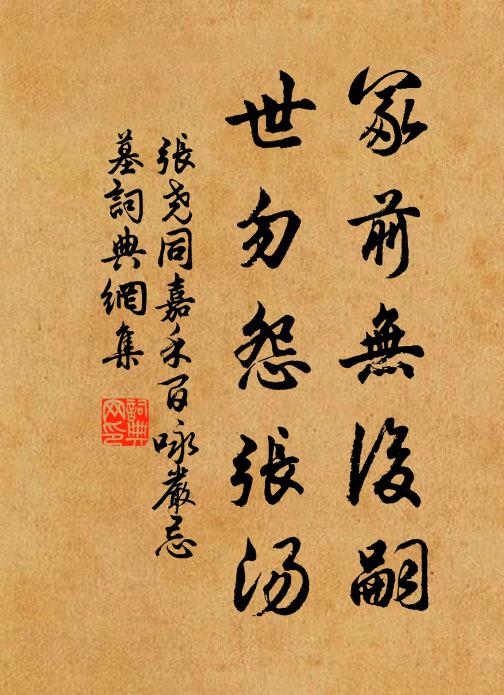 冢前無後嗣
世勿怨張湯
張堯同嘉禾百咏嚴忌
墓詞典網集
詞典
网印